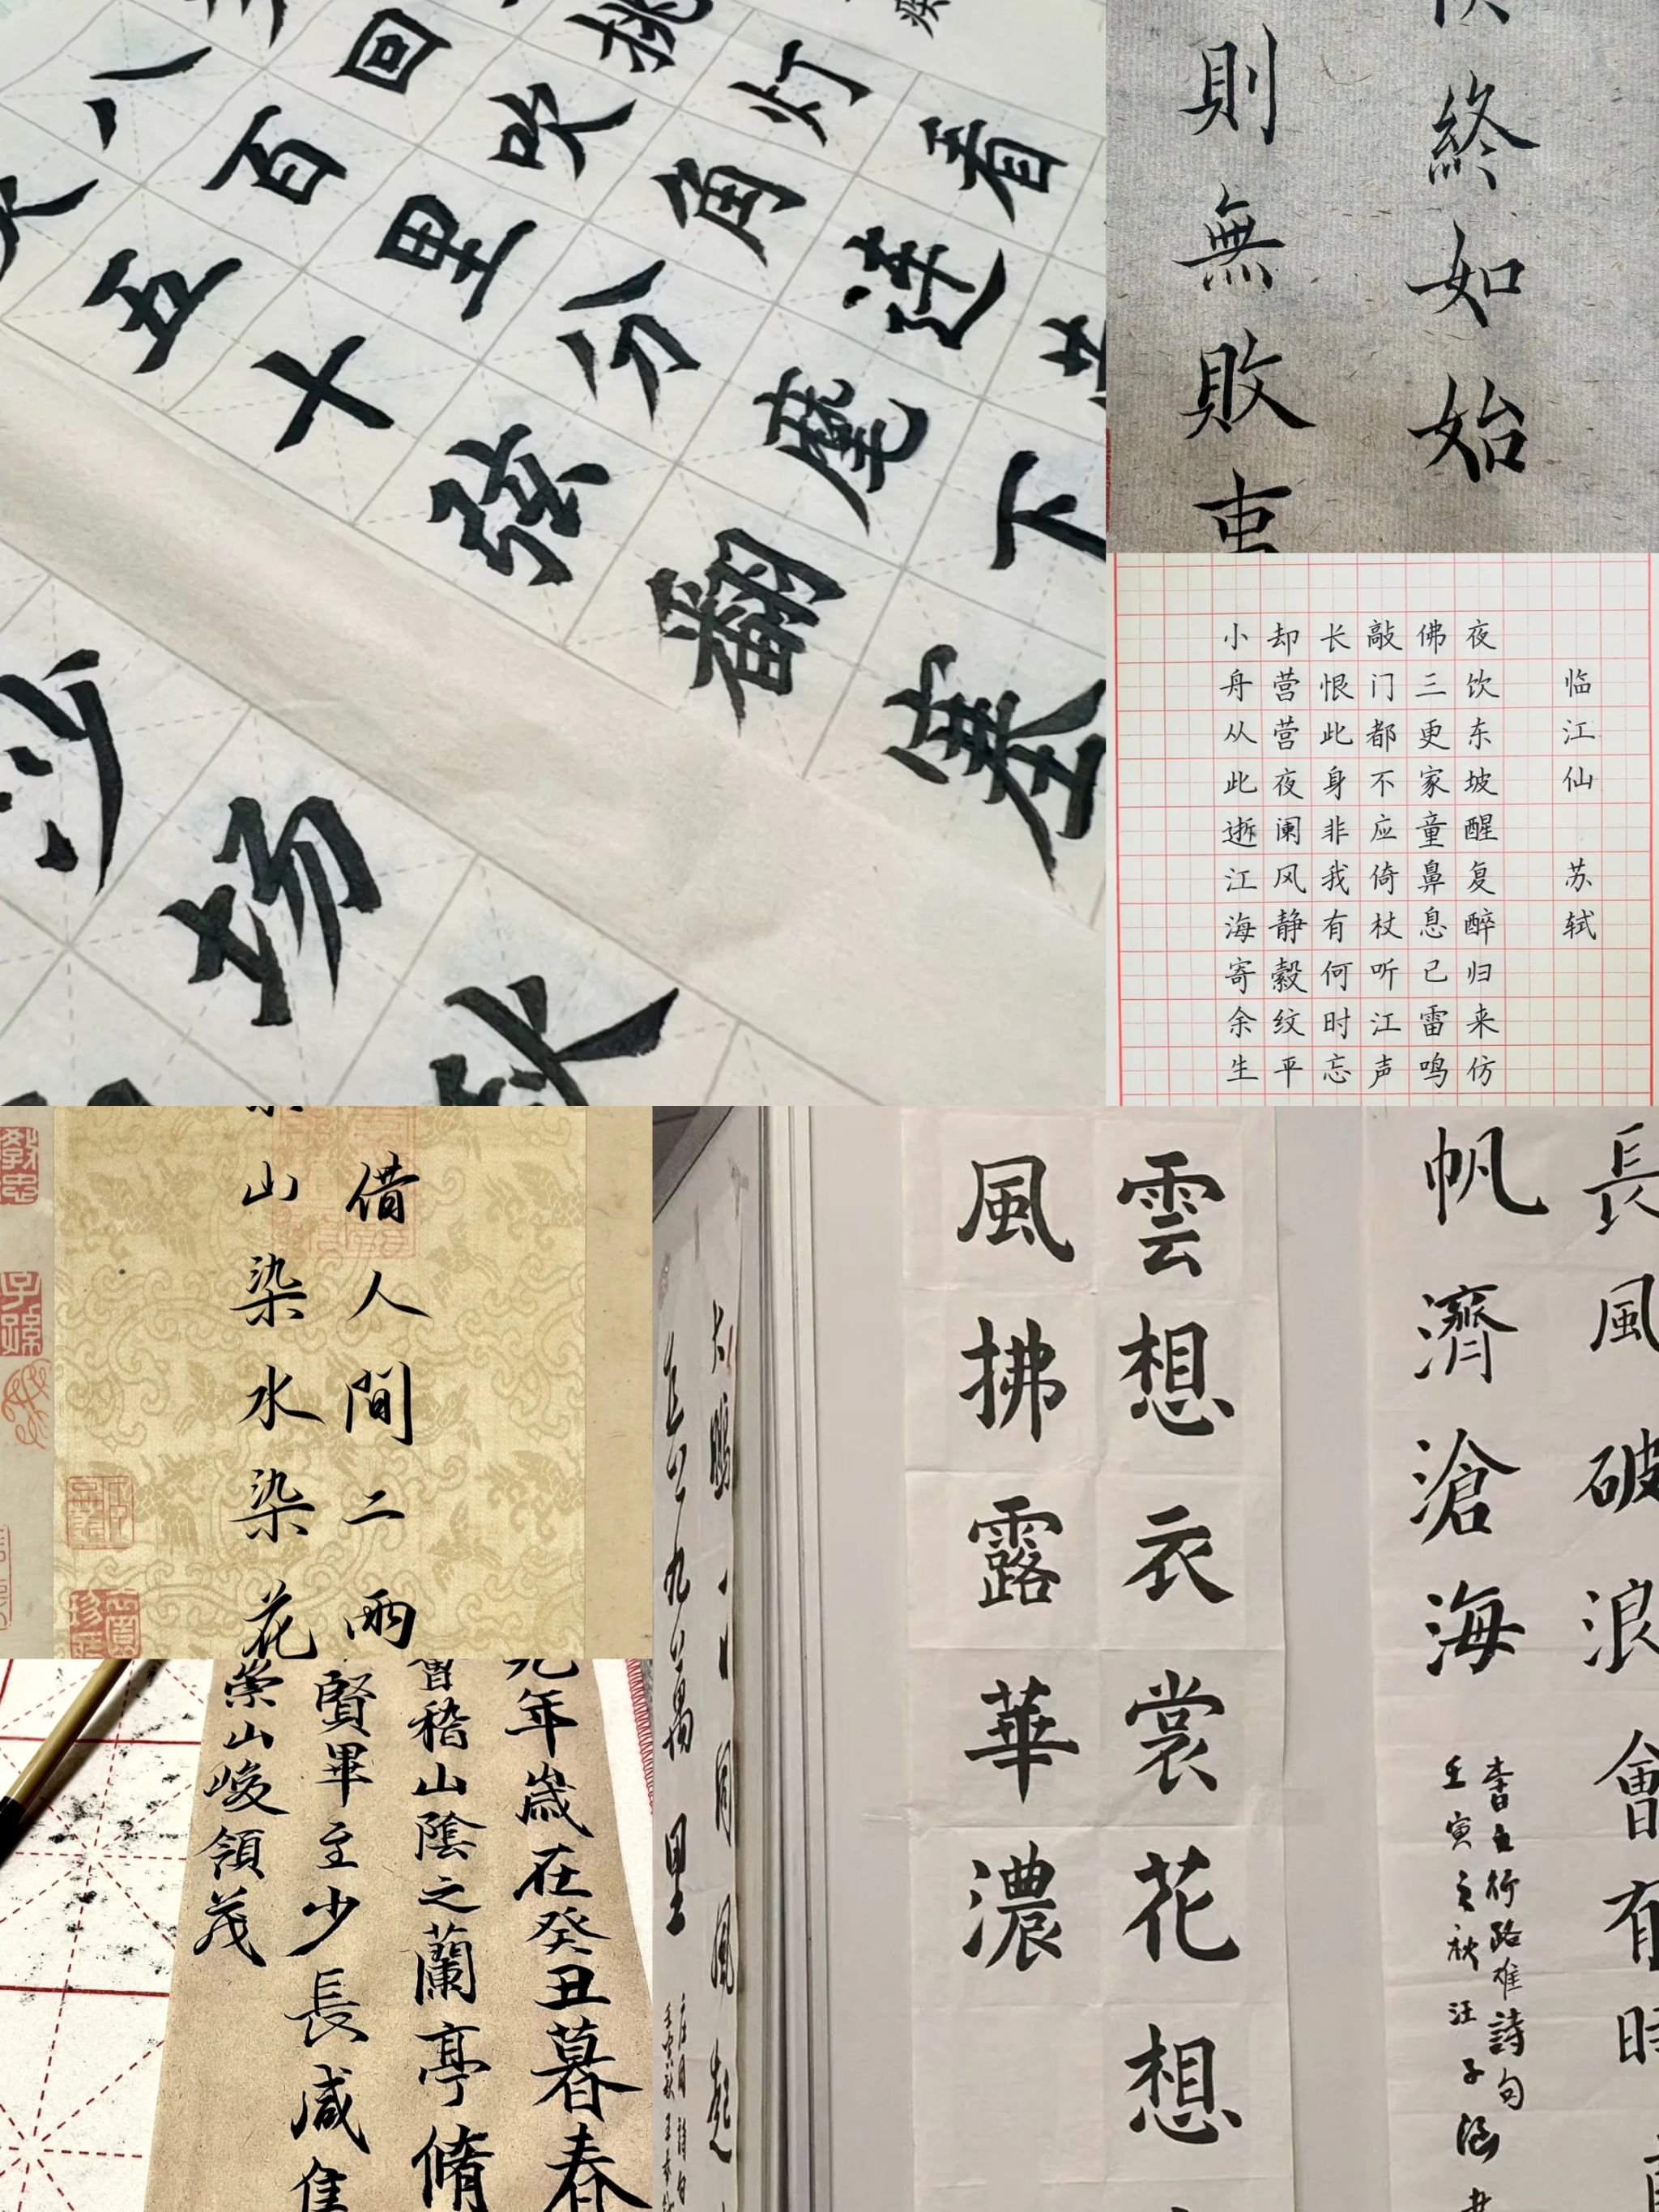 挑灯看
回吹角连
八百里分麾下
五十弦翻塞
沙场秋
終如始
則無敗
临江仙 苏轼
夜饮东坡醒复醉归来仿
佛三更家童鼻息已雷鸣
敲门都不应倚杖听江声
长恨此身非我有何时忘
却营营夜阑风静縠纹平
小舟从此逝江海寄余生
借人間二兩
山染水染花
長風破浪會有時
帆濟滄海
李白行路难詩句
壬寅之秋汪子涵
雲想衣裳花想
風拂露華濃
大鹏一日同風起
直上九萬里
年歲在癸丑暮春
會稽山陰之蘭亭脩
賢畢至少長咸集
崇山峻領茂